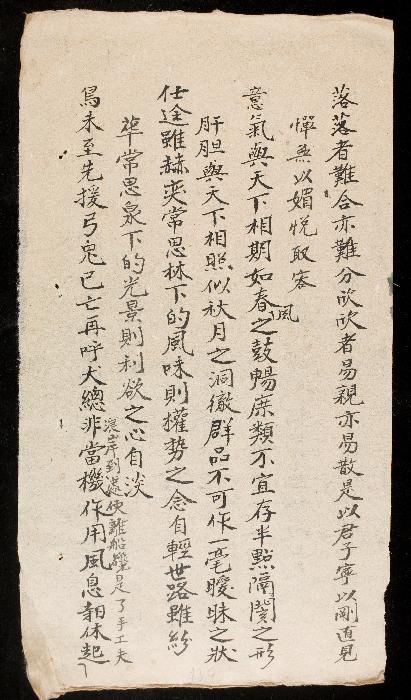 落落者難合亦難分欣欣者易親亦易散是以君子寧以剛直見
憚無以媚悅取容
意氣與天下相期如春風之鼓暢庶類不宜存半點隔閡之形
肝胆與天下相照似秋月之洞徹群品不可作一毫曖昧之狀
仕途雖赫奕常思林下的風味則權勢之念自輕世路雖紛
華常思泉下的光景則利欲之心自淡
未至先援弓兔已亡再呼犬總非當機作用風息時休起
浪岸到處便離船纔是了手工夫